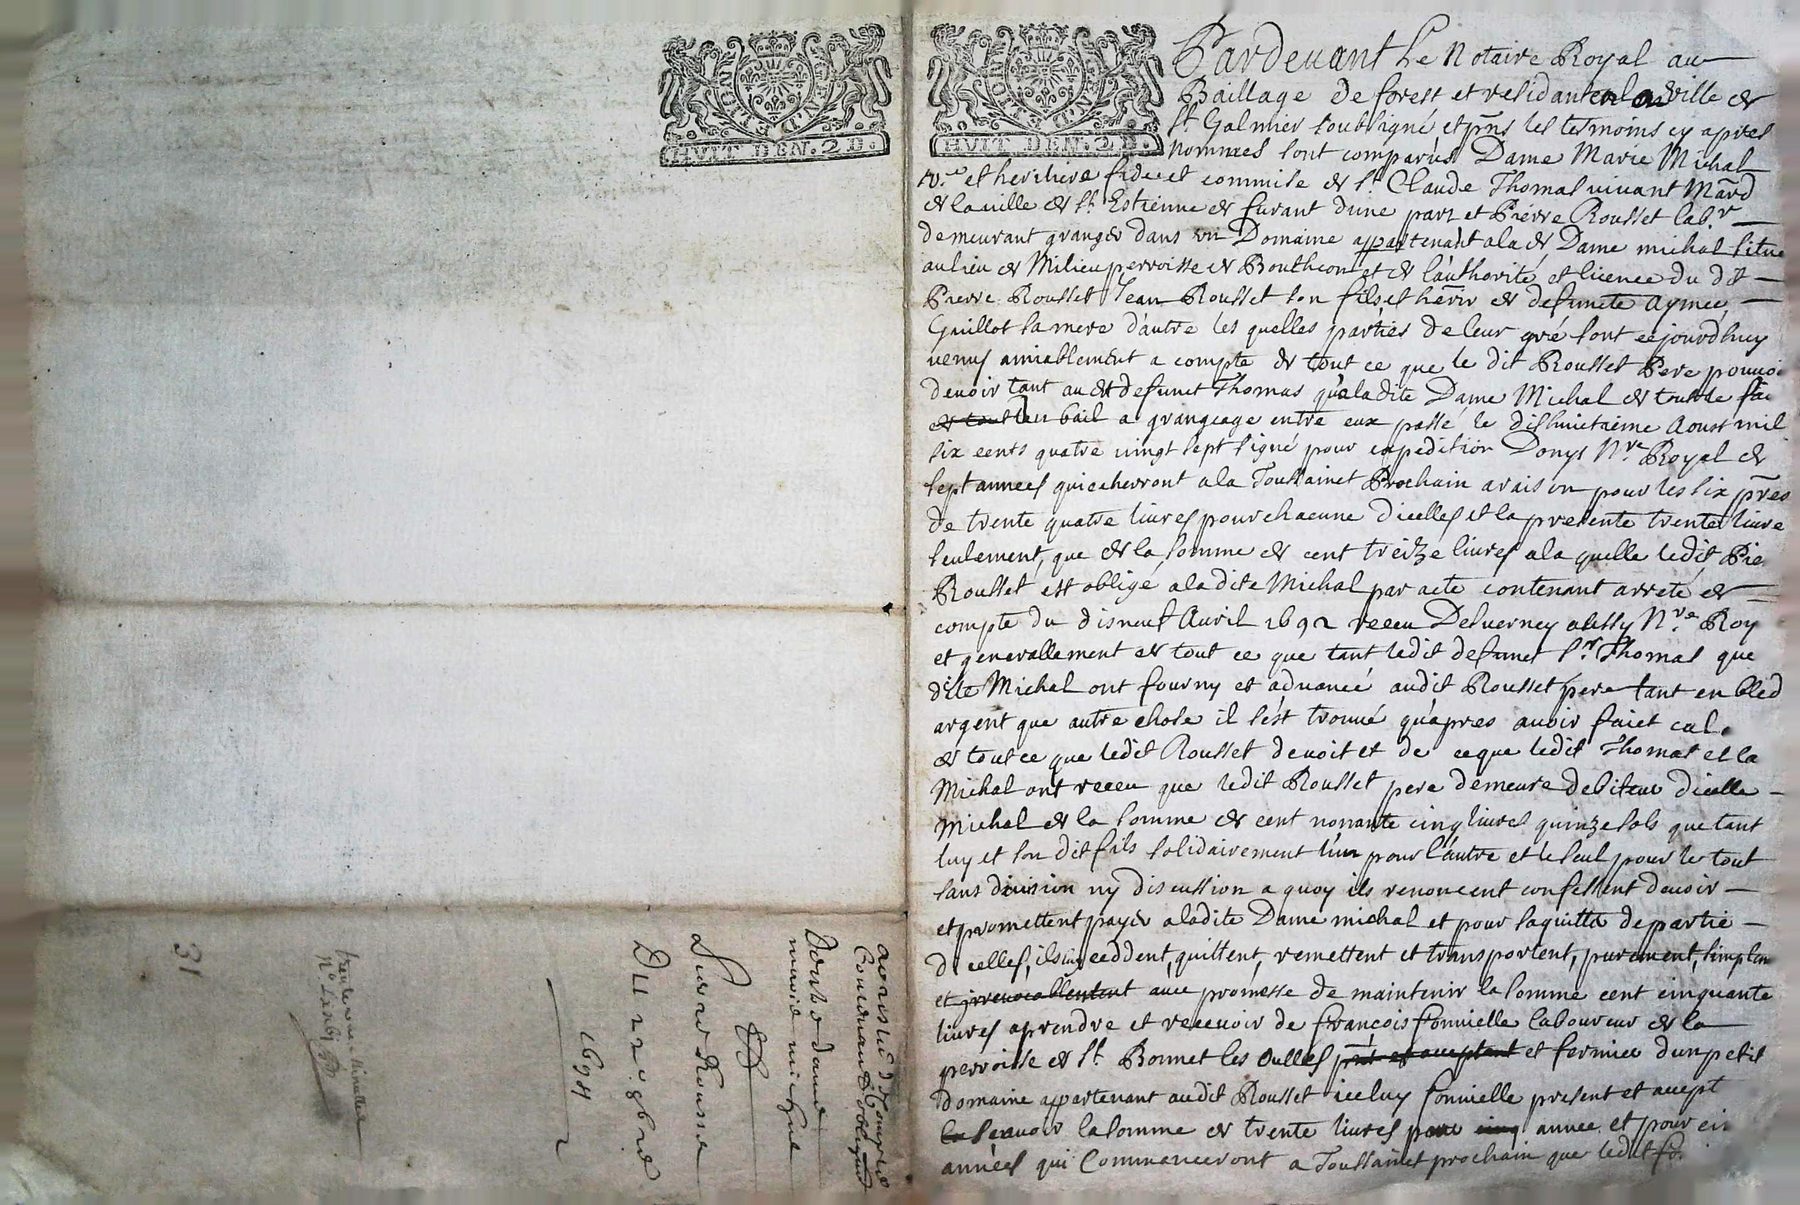 GEN. D. ET LION
HVIT DEN. 2 D.
GEN. D. ET LION
HVIT DEN. 2 D.
Pardevant Le Notaire Royal au
Baillage de forest et residant en la ville de
St Galmier soubsigné et pnts les tesmoins cy apres
nommes sont comparus Dame Marie Michal
et heritiere fidei et commise de Sr Claude Thomas vivant Mard
de la ville de St Estienne de furant dune part et Pierre Rousset labr
demeurant granger dans un Domaine appartenant a la de Dame michal situe
au lieu de Milieu perroisse de Bouthcon et de lauthorité et licence du dit
Pierre Rousset Jean Rousset son fils et herir de defuncte Aymee
Guillot sa mere dautre les quelles parties de leur gré sont cejourdhuy
venus amiablement a compte de tout ce que le dit Rousset Pere pouvoi
devoir tant au dit defunct Thomas qua ladite Dame Michal de tout le
bail a grangeage entre eux passé le dishuictaieme Aoust mil
six cents quatre vingt sept signé pour expedition Donys Nre Royal de
sept annees qui acheveront a la Toussainct Prochain a raison pour les six pres
de trente quatre livres pour chacune dicelles et la presente trente livre
seulement, que de la somme de cent treize livres a la quelle ledit Pie
Rousset est obligé a la dite Michal par acte contenant arreté de
compte du disneuf Avril 1692 receu Deluerney aussy Nre Roy
et generallement de tout ce que tant ledit defunct Sr Thomas que
dite Michal ont fourny et advancé audit Rousset pere tant en bled
argent que autre chose il sest trouué quapres auoir faict cal.
de tout ce que ledit Rousset devoit et de ce que ledit Thomas et la
Michal ont receu que ledit Rousset pere demeure debiteur dicelle
Michal de la somme de cent nonante cinq livres quinze sols que tant
luy et son dit fils solidairement lun pour lautre et le seul pour le tout
sans division ny discussion a quoy ils renoncent confessent devoir
et promettent payer a ladite Dame michal et pour laquitté de partie
dicelles, ils ceddent, quittent, remettent et transportent, purement, simplem
et irrevocablement avec promesse de maintenir la somme cent cinquante
livres a prendre et recevoir de françois fonvielle laboureur de la
perroisse de St Bonnet les Oulles pnt et aceptant et fermier dun petit
domaine appartenant audit Rousset iceluy fonvielle present et acept
scavoir la somme de trente livres pour cinq annee, et pour cin
années qui Commenceront a Toussainct prochain que ledit fo
arresté de Compte
Contenant obligaon
Pour dame
marie michal
Sur Rousset
Du 22e 9bre
1694
trente neuf Minutte
31